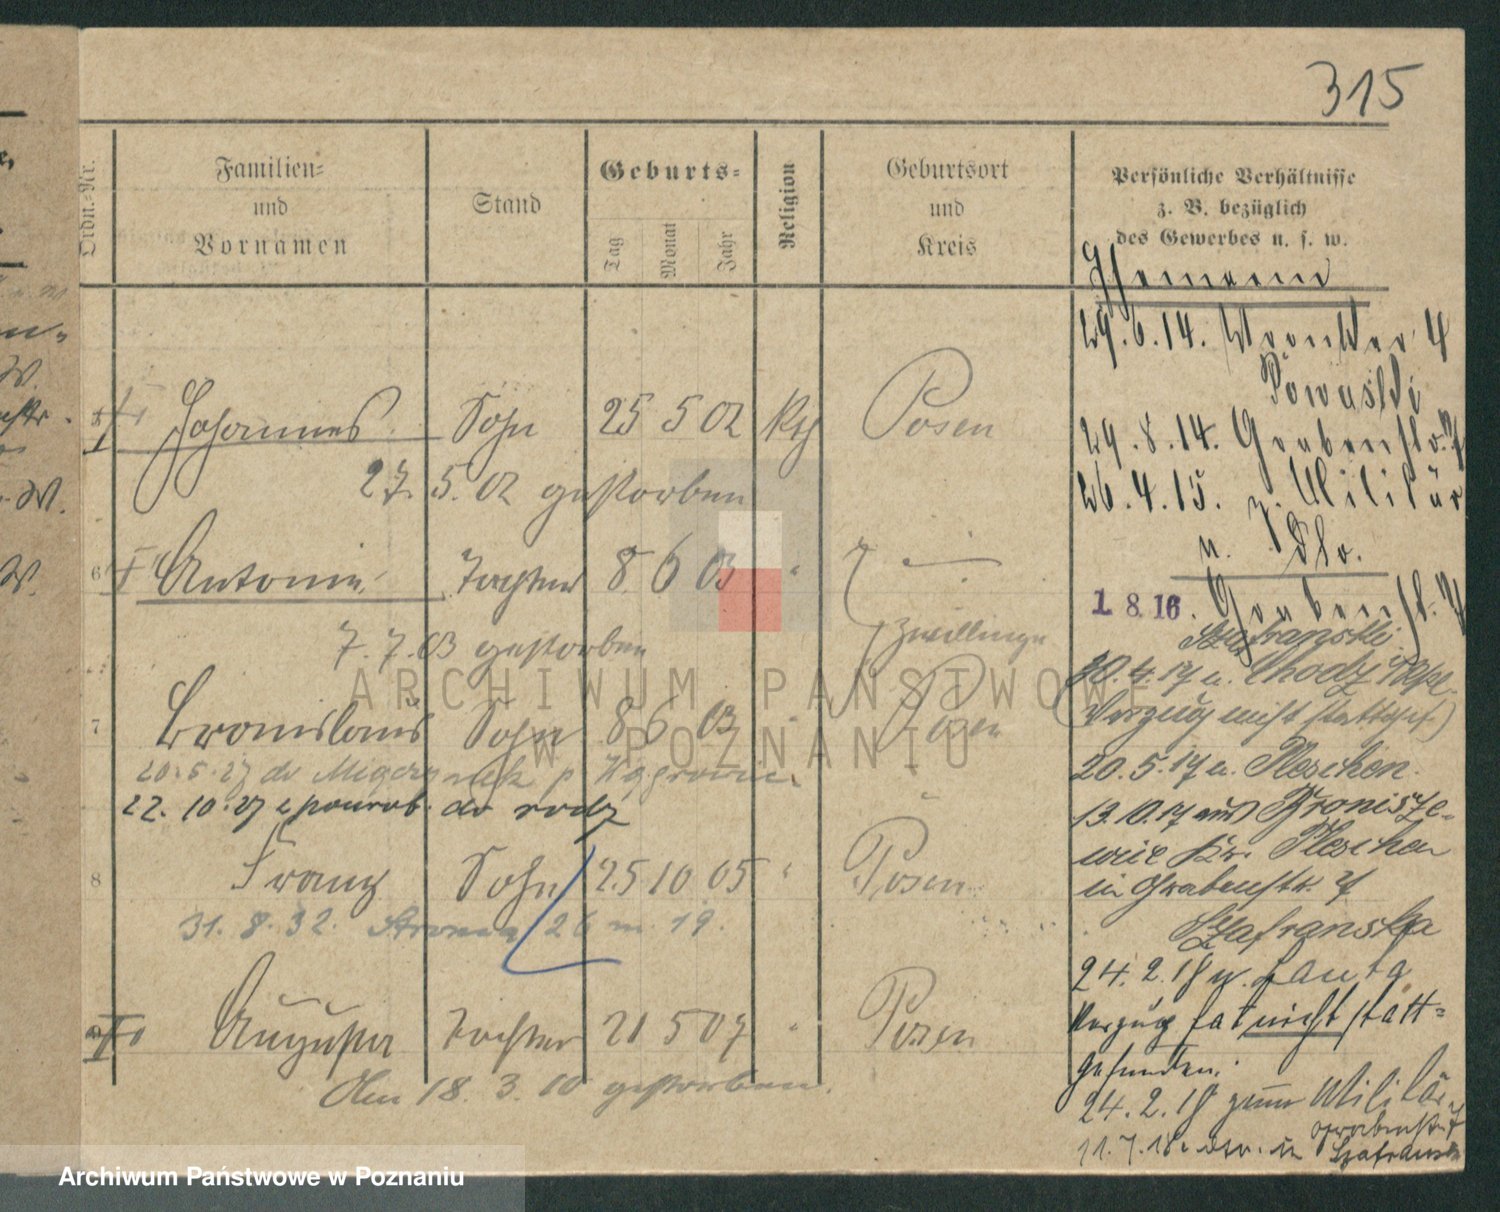 315
Ordn.-Nr.
Familien-
und
Vornamen
Stand
Geburts-
Tag
Monat
Jahr
Religion
Geburtsort
und
Kreis
Persönliche Verhältnisse
z. B. bezüglich
des Gewerbes u. s. w.
Ehemann
29.6.14. Wronker 4
29.8.14. Grabenstr. 7
26.4.15. z. Militär
1 8. 16. Grabenst. 7
Szafranski
Verzug nicht stattgef.)
20.5.17 n. Pleschen.
13.10.17 aus Bronisze-
wice Kr. Pleschen
in Grabenstr. 7
Szafranska
24.2.18 n.
Verzug hat nicht statt-
gefunden.
24.2.18 zum Militär
11.7.18 in Grabenstr. 7
Johannes Sohn 25 5 02 Posen
27. 5. 02 gestorben
6 Antonie Tochter 8 6 03 "
7.7.03 gestorben
Zwillinge
7 Bronislaus Sohn 8 6 03 " Posen
22. 10. 27 z powrot. do rodz
8 Franz Sohn 25 10 05 " Posen
31. 8. 32. 26 m. 19.
Augusta Tochter 21 5 07 " Posen
Am 18. 3. 10 gestorben.
ARCHIWUM PAŃSTWOWE
W POZNANIU
Archiwum Państwowe w Poznaniu